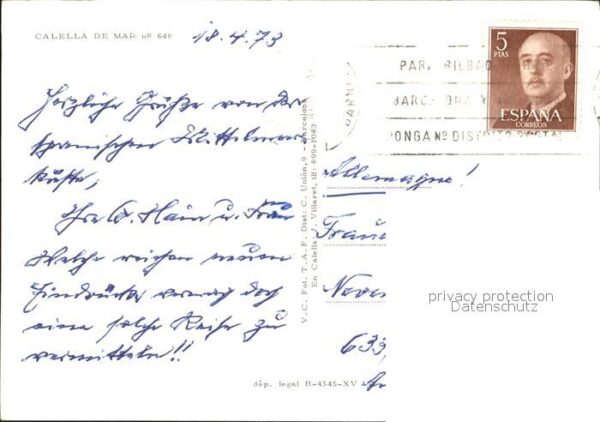 CALELLA DE MAR nº 646
18.4.73
Herzliche Grüße von der
spanischen Mittelmeer
küste,
Ihre G. Hain u. Frau
Welche reichen neuen
Eindrücke vermag doch
eine solche Reise zu
vermitteln!!
V. C. Fot. T. A. F. Dist: C. Union, 9 - Barcelona
En Calella: J. Villaret, tlf: 899-1083
dép. legal B-4545-XV
5
PTAS
ESPAÑA
CORREOS
PARA BILBAO
BARCELONA Y
PONGA Nº DISTRITO POSTAL
Allemagne!
Frau
Neve
633
privacy protection
Datenschutz